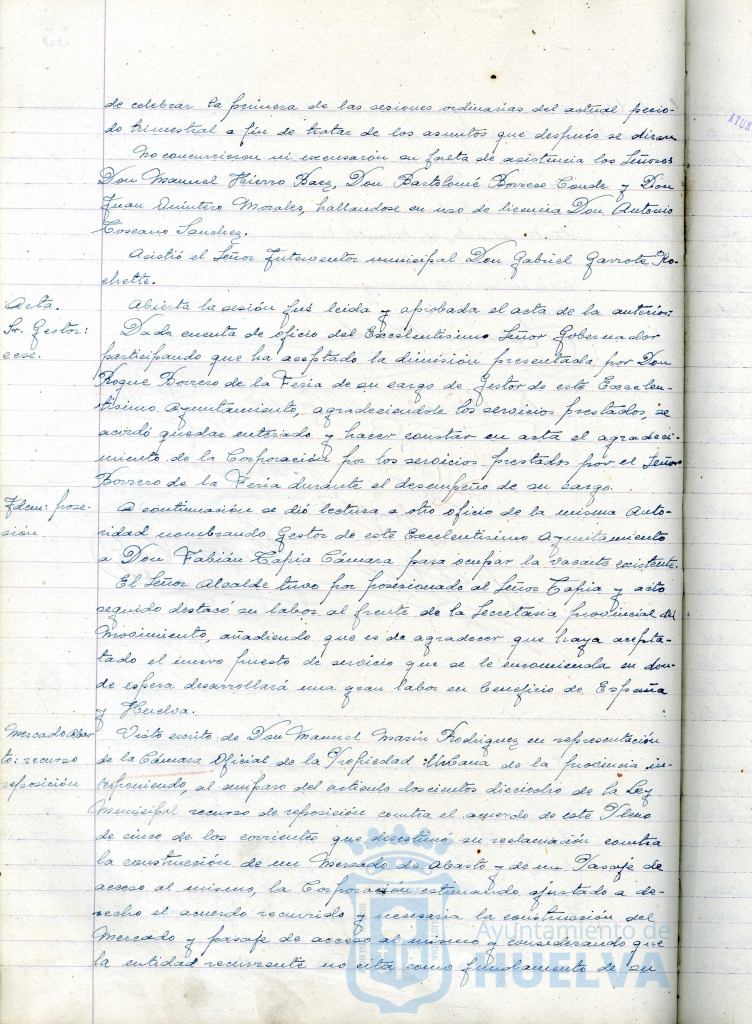 de celebrar la primera de las sesiones ordinarias del actual perio-
do trimestral a fin de tratar de los asuntos que después se diran
No concurrieron ni excusaron su falta de asistencia los Señores
Don Manuel Hierro Baez, Don Bartolomé Borrero Conde y Don
Juan Quintero Morales, hallandose en uso de licencia Don Antonio
Toscano Sanchez.
Asistió el Señor Interventor municipal Don Gabriel Garrote Ro-
chette.
Acta.
Abierta la sesión fué leida y aprobada el acta de la anterior.
Sr. Gestor:
cese.
Dada cuenta de oficio del Excelentisimo Señor Gobernador
participando que ha aceptado la dimisión presentada por Don
Roque Borrero de la Feria de su cargo de Gestor de este Excelen-
tisimo Ayuntamiento, agradeciendole los servicios prestados, se
acordó quedar enterado y hacer constar en acta el agradeci-
miento de la Corporación por los servicios prestados por el Señor
Borrero de la Feria durante el desempeño de su cargo.
Idem: pose-
sión
A continuación se dió lectura a otro oficio de la misma Auto-
ridad nombrando Gestor de este Excelentisimo Ayuntamiento
a Don Fabián Tapia Cámara para ocupar la vacante existente.
El Señor Alcalde tuvo por posesionado al Señor Tapia y acto
seguido destacó su labor al frente de la Secretaria provincial del
Movimiento, añadiendo que es de agradecer que haya acepta-
tado el nuevo puesto de servicio que se le encomienda en don-
de espera desarrollará una gran labor en beneficio de España
y Huelva.
Mercado Abas
to: recurso
reposición
Visto escrito de Don Manuel Marin Rodriguez en representación
de la Cámara Oficial de la Propiedad Urbana de la provincia in-
terponiendo, al amparo del articulo doscientos dieciocho de la Ley
Municipal recurso de reposición contra el acuerdo de este Pleno
de cinco de los corrientes que desestimó su reclamación contra
la construcción de un Mercado de Abasto y de un Pasaje de
acceso al mismo, la Corporación estimando ajustado a de-
recho el acuerdo recurrido y necesaria la construcción del
Mercado y pasaje de acceso al mismo y considerando que
la entidad recurrente no cita como fundamento de su
Ayuntamiento de
HUELVA